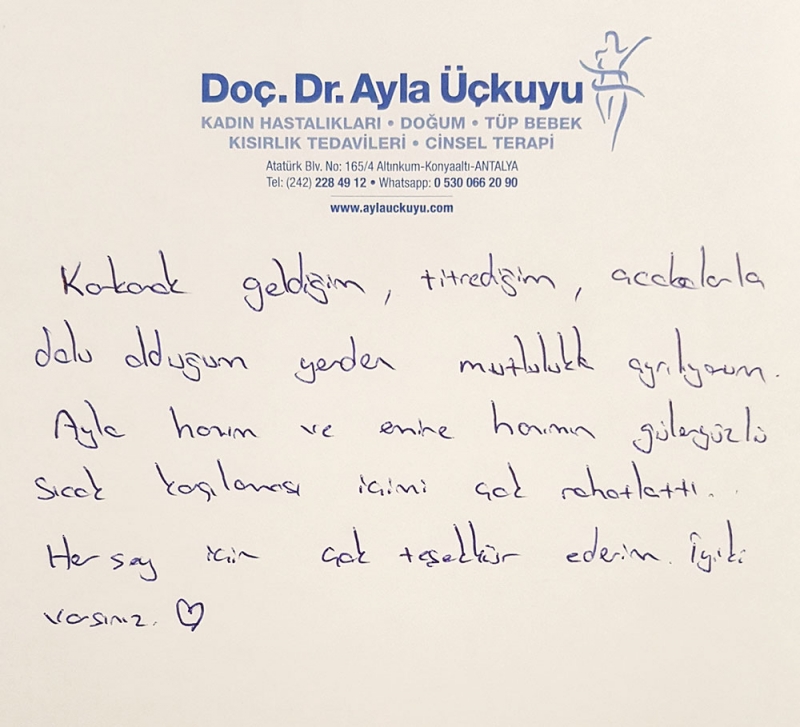 Doç. Dr. Ayla Üçkuyu
KADIN HASTALIKLARI • DOĞUM • TÜP BEBEK
KISIRLIK TEDAVİLERİ • CİNSEL TERAPİ
Atatürk Blv. No: 165/4 Altınkum-Konyaaltı-ANTALYA
Tel: (242) 228 49 12 • Whatsapp: 0 530 066 20 90
www.aylauckuyu.com
Korkarak geldiğim, titrediğim, acabalarla
dolu olduğum yerden mutlulukk ayrılıyorum.
Ayla hanım ve emine hanımın güleryüzlü
sıcak karşılaması içimi çok rahatlattı.
Her şey için çok teşekkür ederim. İyiki
varsınız. ♡